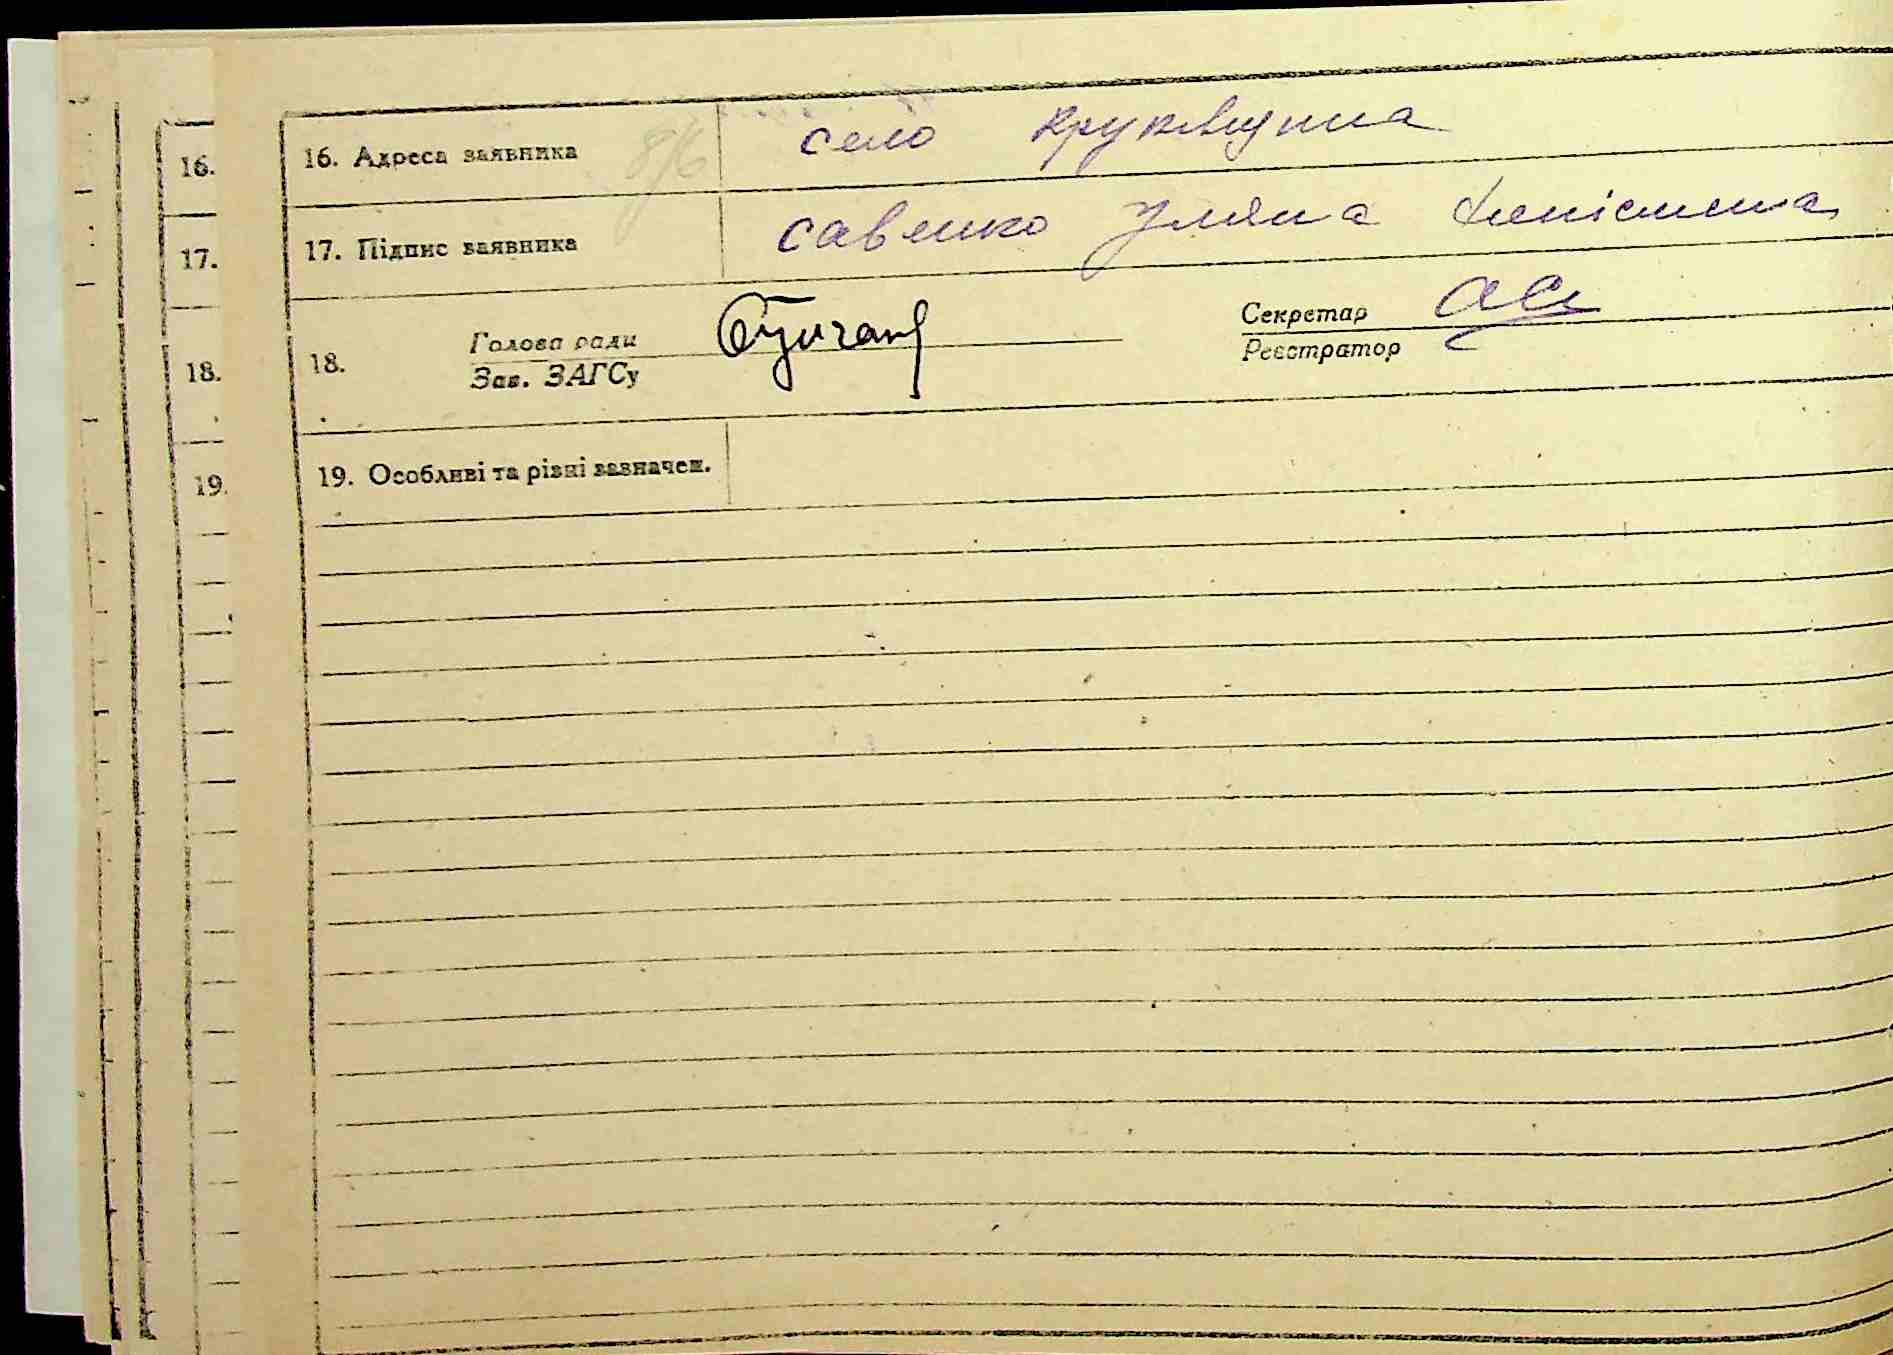 16.
17.
18.
19.
16. Адреса заявника село Круківщина
17. Підпис заявника Савенко Уляна неписменна
18. Голова ради
Зав. ЗАГСу
Секретар
Реєстратор
19. Особливі та різні зазначен.